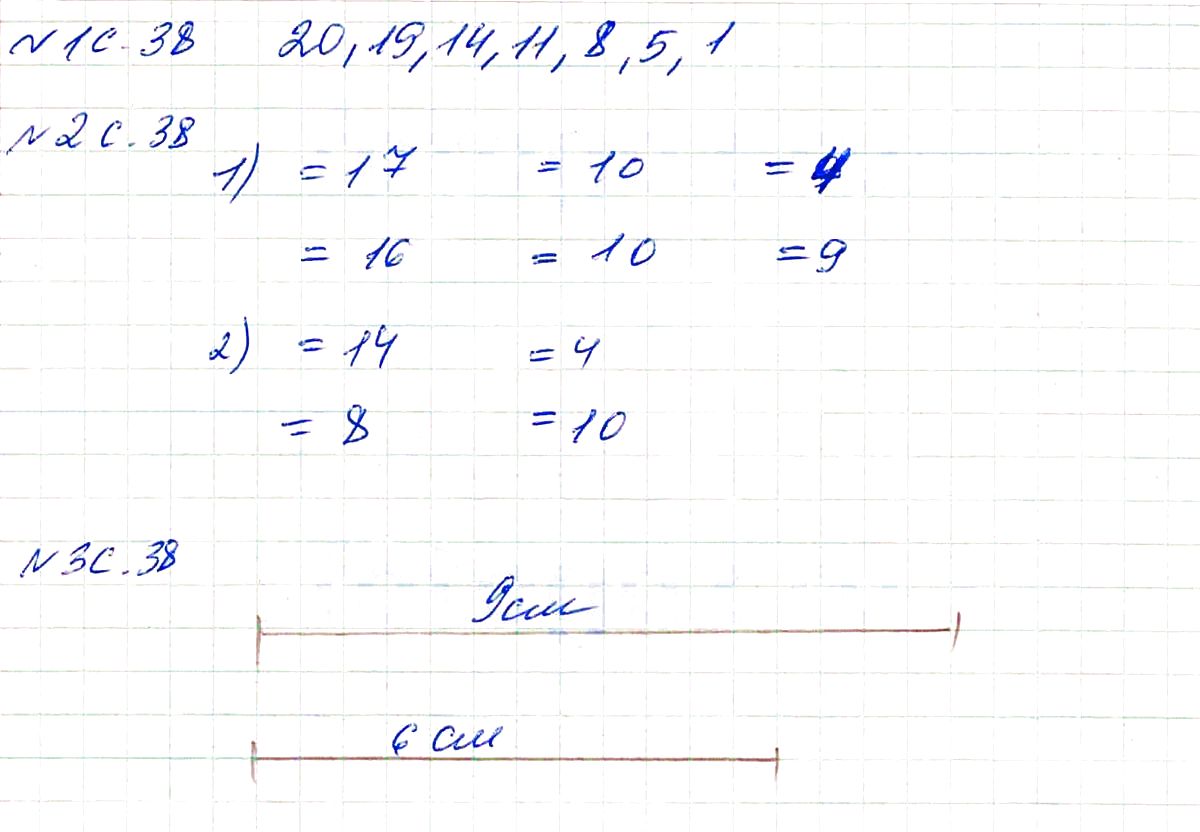 №1 с. 38 20, 19, 14, 11, 8, 5, 1
№2 с. 38
1) = 17 = 10 = 4
= 16 = 10 = 9
2) = 14 = 4
= 8 = 10
№3 с. 38
9 см
6 см